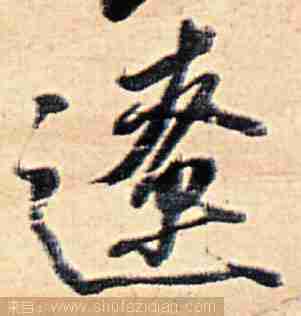 遼
来自：www.shufazidian.com